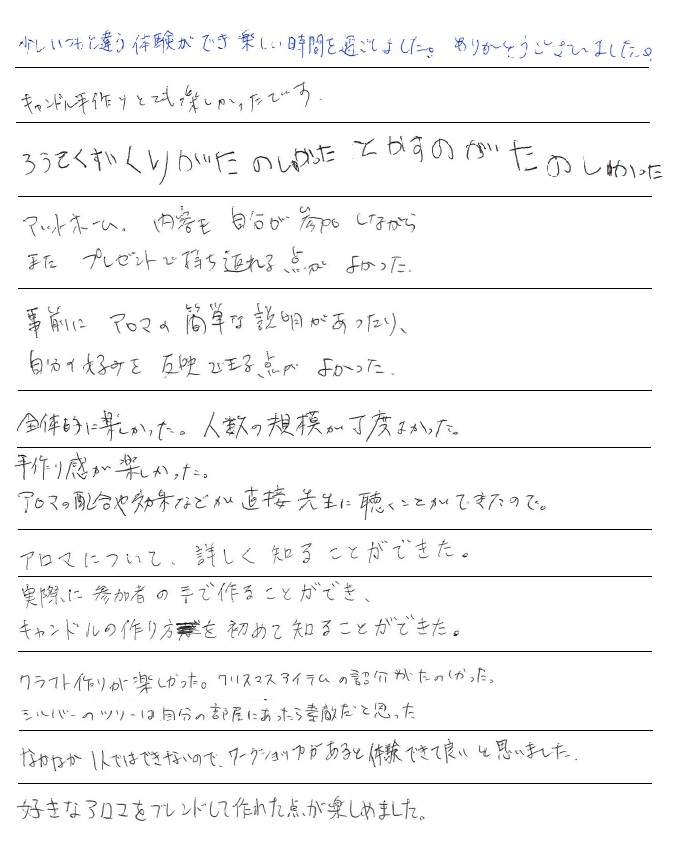 少しいつもと違う体験ができ楽しい時間を過ごしました。ありがとうございました。
キャンドル手作りとても楽しかったです.
ろうそくずくりがいたのしかったとかすのがいたのしかった
アットホーム. 内容も自分が参加しながら
また プレゼントで持ち返れる点がよかった.
事前に アロマの簡単な説明があったり、
自分の好みを反映できる点が よかった.
全体的に楽しかった。人数の規模が丁度よかった。
手作り感が楽しかった。
アロマの配合や効果などが直接先生に聴くことができたので。
アロマについて、詳しく知ることができた。
実際に参加者の手で作ることができ、
キャンドルの作り方を初めて知ることができた。
クラフト作りが楽しかった。クリスマスアイテムの紹介がたのしかった。
シルバーのツリーは自分の部屋にあったら素敵だと思った
なかなか1人ではできないので、ワークショップがあると体験できて良いと思いました.
好きなアロマをブレンドして作れた点が楽しめました。